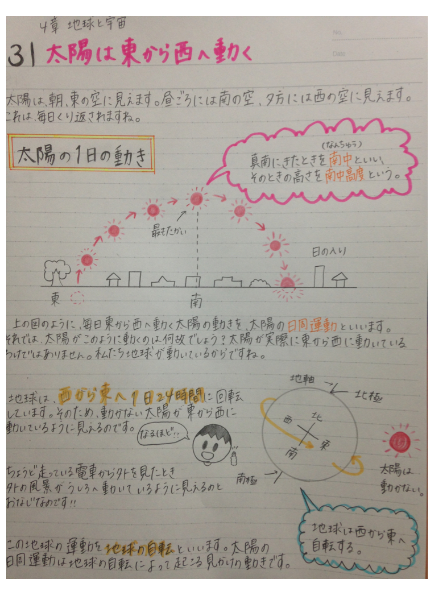 4章 地球と宇宙
31 太陽は東から西へ動く
太陽は、朝、東の空に見えます。昼ごろには南の空、夕方には西の空に見えます。
これは毎日くり返されますね。
太陽の1日の動き
(なんちゅう)
真南にきたときを南中といい、
そのときの高さを南中高度という。
最もたかい
日の入り
東
南
上の図のように、毎日東から西へ動く太陽の動きを、太陽の日周運動といいます。
それでは、太陽がこのように動くのは何故でしょう?太陽が実際に東から西に動いている
わけではありません。私たち地球が動いているからですね。
地球は、西から東へ1日24時間に回転
しています。そのため、動かない太陽が東から西に
動いているように見えるのです。
なるほど…
ちょうど走っている電車から外を見たとき
外の風景がうしろへ動いているように見えるのと
おなじなのです!!
地軸
北極
北
西
東
南
南極
太陽は
動かない。
地球は西から東へ
自転する。
この地球の運動を地球の自転といいます。太陽の
日周運動は地球の自転によって起こる見かけの動きです。